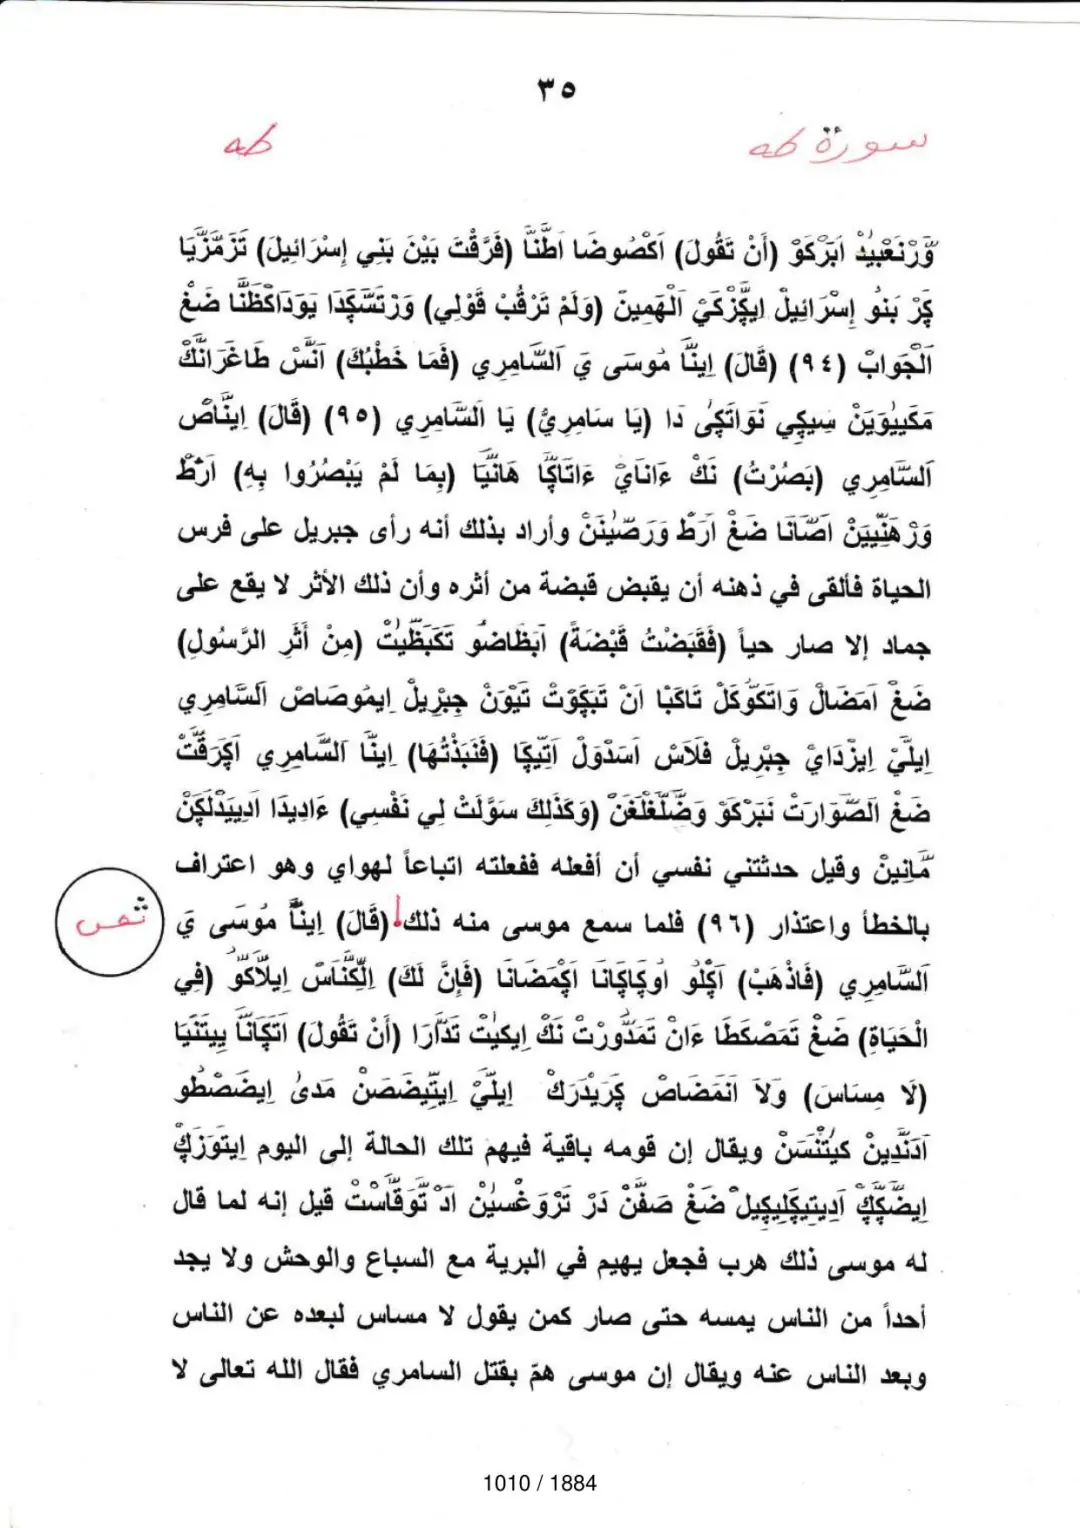 ٣٥
سورة طه
طه
وَرْنَعْبِيدْ اَبَرْكَوْ (أَنْ تَقُولَ) اَكْصُوضَا اَطْنَّا (فَرَّقْتَ بَيْنَ بَنِي إِسْرَائِيلَ) تَزَمَّزْيَا
كَرْ بَنُو إِسْرَائِيلْ اِيكَزْكَيْ اَلْهَمِينْ (وَلَمْ تَرْقُبْ قَوْلِي) وَرْتَسَّكَدَا يَوَدَاكْظَنَّا ضَغْ
اَلْجَوَابْ (٩٤) (قَالَ) اِينَّا مُوسَى يَ اَلسَّامِرِي (فَمَا خَطْبُكَ) اَنَّسْ طَاغَرَانَّكْ
مَكَيِيُوَيَنْ سِيكِي نَوَاتَكِى دَا (يَا سَامِرِيُّ) يَا اَلسَّامِرِي (٩٥) (قَالَ) اِينَّاصْ
اَلسَّامِرِي (بَصُرْتُ) نَكْ ءَانَايْ ءَاتَاكَا هَانَيَّا (بِمَا لَمْ يَبْصُرُوا بِهِ) اَرَطْ
وَرْهَنَّيَيَنْ اَصَّانَا ضَغْ اَرَطْ وَرَصَّيْنَنْ وأراد بذلك أنه رأى جبريل على فرس
الحياة فألقى في ذهنه أن يقبض قبضة من أثره وأن ذلك الأثر لا يقع على
جماد إلا صار حياً (فَقَبَضْتُ قَبْضَةً) اَبَظَاضُو تَكَبَظَيْتْ (مِنْ أَثَرِ الرَّسُولِ)
ضَغْ اَمَضَالْ وَاتَكَوْكَلْ تَاكَبَا اَنْ تَبَكَوْتْ تَيْوَنْ جِبْرِيلْ اِيمُوصَاصْ اَلسَّامِرِي
اِيلَيْ اِيزْدَايْ جِبْرِيلْ فَلَاسْ اَسَدْوَلْ اَتِيكَا (فَنَبَذْتُهَا) اِينَّا اَلسَّامِرِي اَكَرَقَتْ
ضَغْ اَلصَّوَارَتْ نَبَرْكَوْ وَضَلَّغْلَغَنْ (وَكَذَلِكَ سَوَّلَتْ لِي نَفْسِي) ءَادِيدَا اَدِيَيَدْلَكَنْ
مَانِينْ وقيل حدثتني نفسي أن أفعله ففعلته اتباعاً لهواي وهو اعتراف
بالخطأ واعتذار (٩٦) فلما سمع موسى منه ذلك (قَالَ) اِينَّا مُوسَى يَ
ثمن
اَلسَّامِرِي (فَاذْهَبْ) اَكْلُو اُوكَاكَانَا اَكْمَضَانَا (فَإِنَّ لَكَ) اِلْكَنَاسْ اِيلَاكَوْ (فِي
الْحَيَاةِ) ضَغْ تَمَصْكَطَا ءَانْ تَمَدُّورْتْ نَكْ اِيكَيْتْ تَدَّارَا (أَنْ تَقُولَ) اَتَكَانَّا يِيتَنْيَا
(لَا مِسَاسَ) وَلَا اَنْمَضَاصْ كَرِيْدَرَكْ اِيلَيْ اِيتِيضَصَنْ مَدَىْ اِيضَصْطُو
اَدَنَّدِينْ كَيْتْنَسَنْ ويقال إن قومه باقية فيهم تلك الحالة إلى اليوم اِيتَوَزَكْ
اِيضَكَكْ اَدِيتِيكْلِيكِيلْ ضَغْ صَفَّنْ دَرْ تَرْوَغْسِيْنْ اَدْ تَوْقَّاسْتْ قيل إنه لما قال
له موسى ذلك هرب فجعل يهيم في البرية مع السباع والوحش ولا يجد
أحداً من الناس يمسه حتى صار كمن يقول لا مساس لبعده عن الناس
وبعد الناس عنه ويقال إن موسى همّ بقتل السامري فقال الله تعالى لا
1010 / 1884